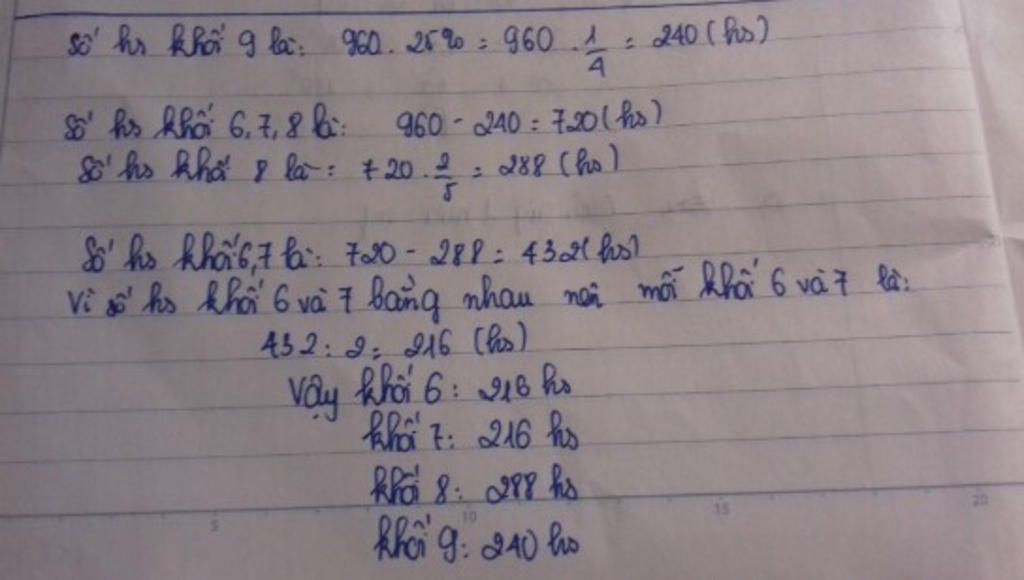 Số hs khối 9 là: 960 . 25% = 960 . 1/4 = 240 (hs)
Số hs khối 6, 7, 8 là: 960 - 240 = 720 (hs)
Số hs khối 8 là: 720 . 2/5 = 288 (hs)
Số hs khối 6, 7 là: 720 - 288 = 432 (hs)
Vì số hs khối 6 và 7 bằng nhau nên mỗi khối 6 và 7 là:
432 : 2 = 216 (hs)
Vậy khối 6: 216 hs
khối 7: 216 hs
khối 8: 288 hs
khối 9: 240 hs
5 10 15 20